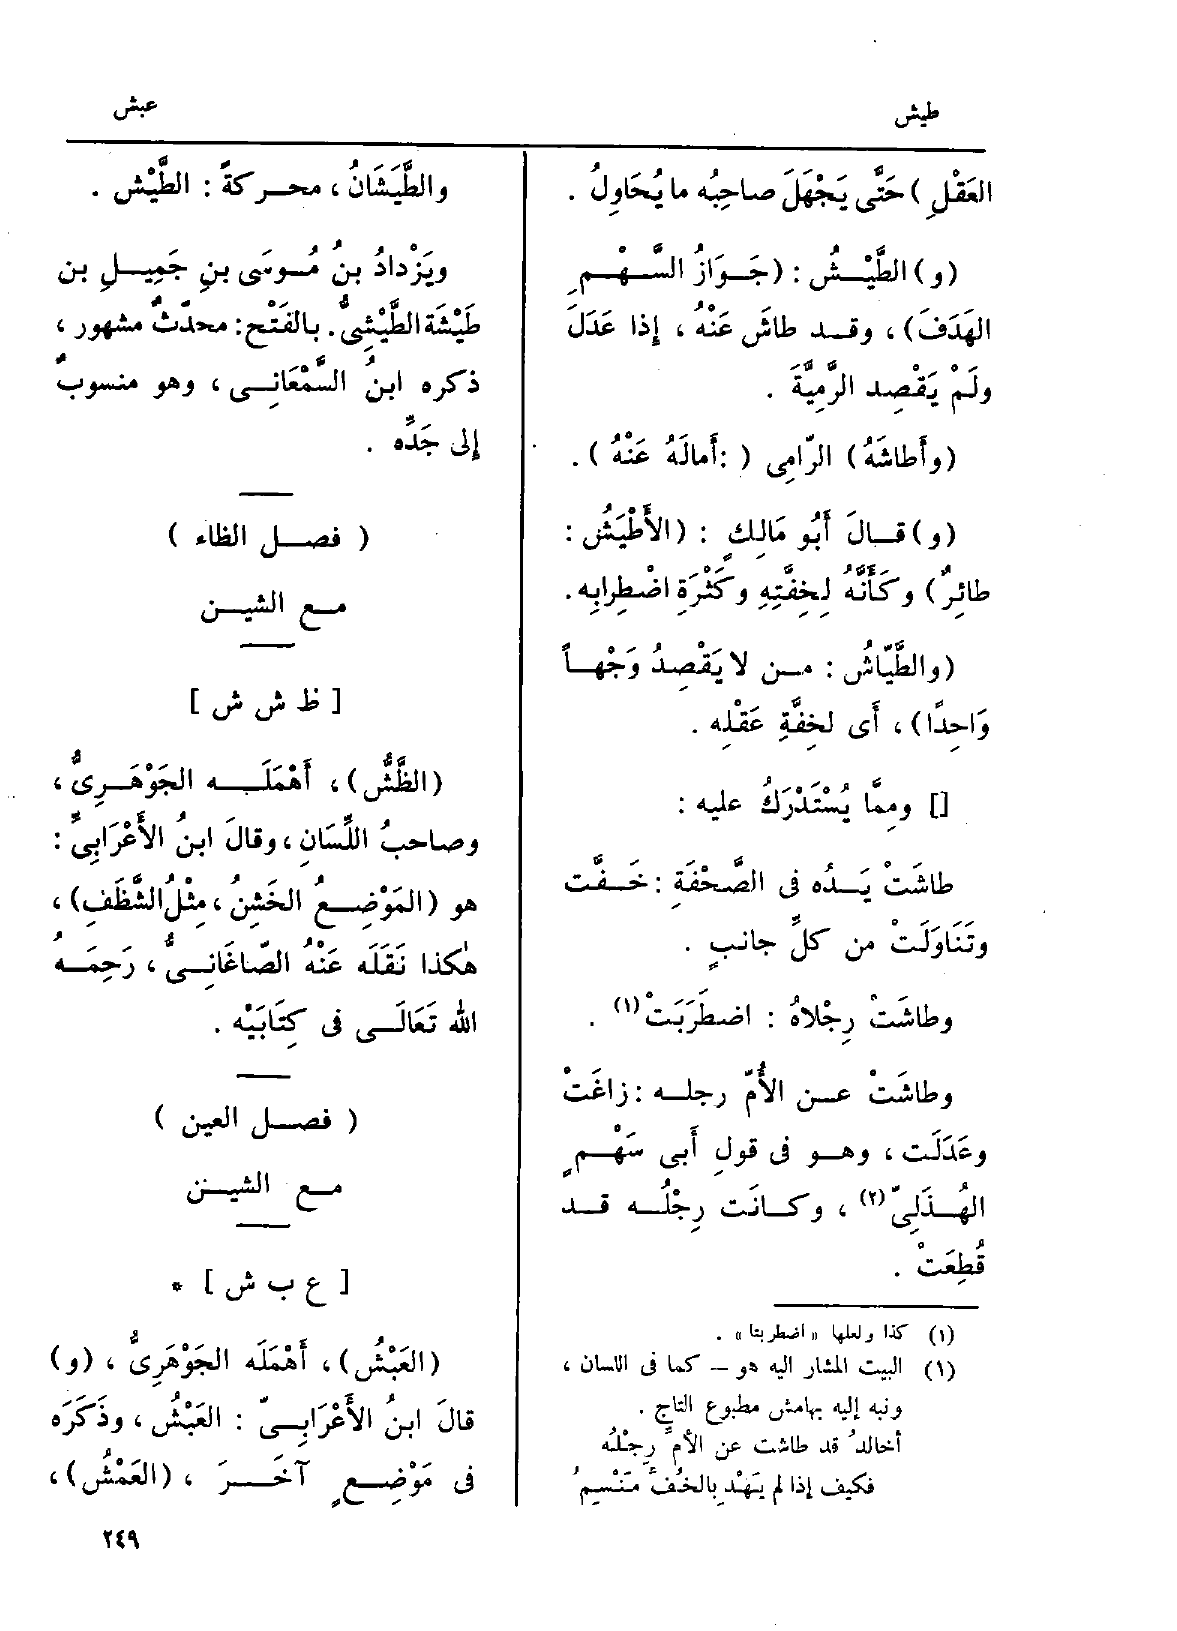 طيش
عبش
العَقْلِ ) حَتَّى يَجْهَلَ صاحِبُه ما يُحَاوِلُ .
(و) الطَّيْشُ : (جَوَازُ السَّهْمِ
الهَدَفَ) ، وقد طاشَ عَنْهُ ، إذا عَدَلَ
ولَمْ يَقْصِد الرَّمِيَّةَ .
(وأَطاشَهُ) الرّامِى ( : أَمالَهُ عَنْهُ ) .
(و) قالَ أَبُو مَالِكٍ : (الأَطْيَشُ :
طائِرٌ) وكَأَنَّهُ لِخِفَّتِهِ وكَثْرَةِ اضْطِرابِه .
(والطَّيّاشُ : من لا يَقْصِدُ وَجْهاً
وَاحِدًا) ، أَى لخِفَّةِ عَقْلِه .
[] ومِمَّا يُسْتَدْرَكُ عليه :
طاشَتْ يَدُه فى الصَّحْفَةِ : خَفَّت
وتَنَاوَلَتْ من كلِّ جانبٍ .
وطاشَتْ رِجْلاهُ : اضطَرَبَتْ (١) .
وطاشَتْ عن الأُمّ رجله : زاغَتْ
وعَدَلَت ، وهو فى قولِ أَبى سَهْمٍ
الهُذَلِىّ (٢) ، وكانَت رِجْلُه قد
قُطِعَتْ .
(١) كذا ولعلها « اضطربتا » .
(١) البيت المشار اليه هو – كما فى اللسان ،
ونبه إليه بهامش مطبوع التاج .
أخالدُ قد طاشت عن الأمِّ رِجْلُه
فكيف إذا لم يَهْدِ بالخُفِّ مَنْسِمُ
والطَّيَشَانُ ، محركةً : الطَّيْش .
ويَزْدادُ بنُ مُوسَى بنِ جَمِيلِ بن
طَيْشَة الطَّيْشِىُّ . بالفَتْح : محدّثٌ مشهور ،
ذكره ابنُ السَّمْعَانِى ، وهو منسوبٌ
إلى جَدِّه .
( فصل الظاء )
مع الشين
[ ظ ش ش ]
(الظَّشُّ) ، أَهْمَلَه الجَوْهَرِىُّ ،
وصاحبُ اللِّسَانِ ، وقالَ ابنُ الأَعْرَابِىِّ :
هو (المَوْضِعُ الخَشِنُ ، مِثْلُ الشَّظَفِ) ،
هٰكذا نَقَلَه عَنْهُ الصّاغَانِىُّ ، رَحِمَهُ
الله تَعَالَى فى كِتَابَيْه .
( فصل العين )
مع الشين
[ ع ب ش ] *
(العَبْشُ) ، أَهْمَلَه الجَوْهَرِىُّ ، (و)
قالَ ابنُ الأَعْرَابِىّ : العَبْشُ ، وذَكَرَه
فى مَوْضِعٍ آخَرَ ، (العَمْشُ) ،
٢٤٩